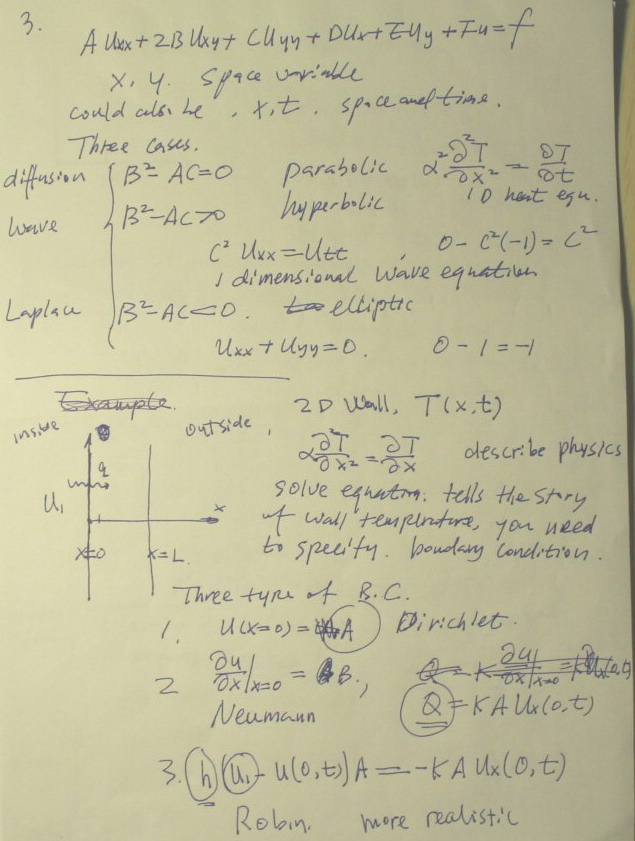 3.
A Uxx + 2B Uxy + C Uyy + D Ux + E Uy + Fu = f
x, y. space variable
could also be . x, t . space and time.
Three cases.
diffusion B² - AC = 0 parabolic α² ∂²T/∂x² = ∂T/∂t
1D heat equ.
Wave B² - AC > 0 hyperbolic
C² Uxx = Utt , 0 - C²(-1) = C²
1 dimensional wave equation
Laplace B² - AC < 0. elliptic
Uxx + Uyy = 0. 0 - 1 = -1
Example.
2D Wall, T(x,t)
inside outside,
α ∂²T/∂x² = ∂T/∂x describe physics
q
U₁
x
x=0 x=L.
solve equation. tells the story
of wall temperature, you need
to specify. boudary condition.
Three type of B.C.
1. U(x=0) = A Dirichlet.
2 ∂u/∂x|x=0 = B.,
Neumann Q = K A Ux(0,t)
3. h(U₁ - U(0,t))A = -K A Ux(0,t)
Robin. more realistic